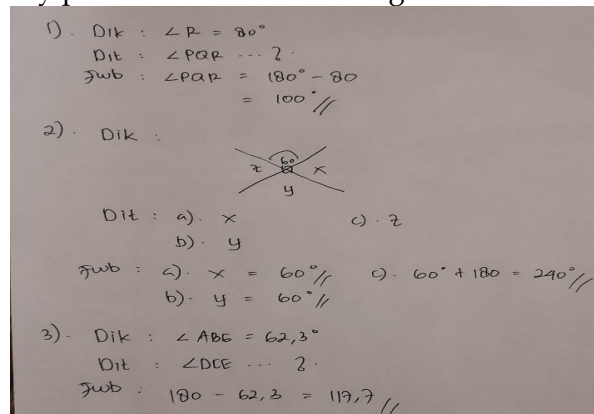 1). Dik : ∠R = 80°
Dit : ∠PQR ... ?
Jwb : ∠PQR = 180° - 80
= 100°//
2). Dik :
60
z x
y
Dit : a). x c). z
b). y
Jwb : a). x = 60°// c). 60° + 180 = 240°//
b). y = 60°//
3). Dik : ∠ABE = 62,3°
Dit : ∠DCE ... ?
Jwb : 180 - 62,3 = 117,7//